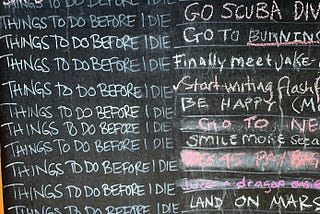 THINGS TO DO BEFORE I DIE GO SCUBA DIV
THINGS TO DO BEFORE I DIE GO TO BURNING
THINGS TO DO BEFORE I DIE Finally meet Jake
THINGS TO DO BEFORE I DIE Start writing flash
THINGS TO DO BEFORE I DIE BE HAPPY (M
THINGS TO DO BEFORE I DIE GO TO NE
THINGS TO DO BEFORE I DIE SMILE MORE
THINGS TO DO BEFORE I DIE
THINGS TO DO BEFORE I DIE dragon
THINGS TO DO BEFORE I DIE LAND ON MARS